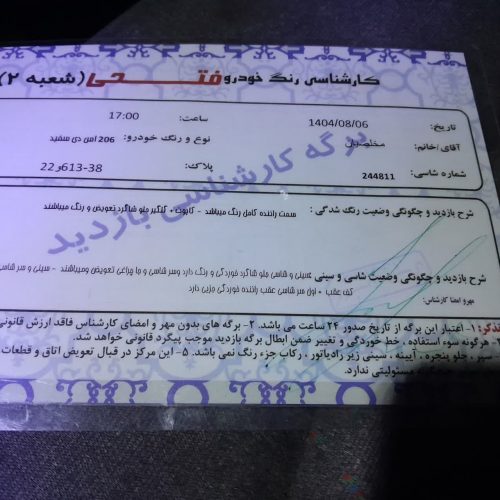 کارشناسی رنگ خودرو فتحی (شعبه ۲)
تاریخ: 1404/08/06 ساعت: 17:00
آقای/خانم: نوع و رنگ خودرو: 206 اس دی سفید
شماره شاسی: 244811 پلاک: 38-613و22
برگه کارشناسی بازدید
شرح بازدید و چگونگی وضعیت رنگ شدگی: سمت راننده کامل رنگ میباشد - کاپوت + گلگیر جلو شاگرد تعویض و رنگ میباشند
شرح بازدید و چگونگی وضعیت شاسی و سینی: سینی و شاسی جلو شاگرد خوردگی و رنگ دارد وسر شاسی و جا چراغی تعویض ومیباشند - سینی و سر شاسی
کف عقب + اول سر شاسی عقب راننده خوردگی جزیی دارد
مهر و امضا کارشناس:
تذکر: ۱- اعتبار این برگه از تاریخ صدور ۲۴ ساعت می باشد. ۲- برگه های بدون مهر و امضای کارشناس فاقد ارزش قانونی
هرگونه سوء استفاده ، خط خوردگی و تغییر ضمن ابطال برگه بازدید موجب پیگرد قانونی خواهد شد.
سپر ، جلو پنجره ، آیینه ، سینی زیر رادیاتور ، رکاب جزء رنگ نمی باشد. ۵- این مرکز در قبال تعویض اتاق و قطعات
مسئولیتی ندارد.